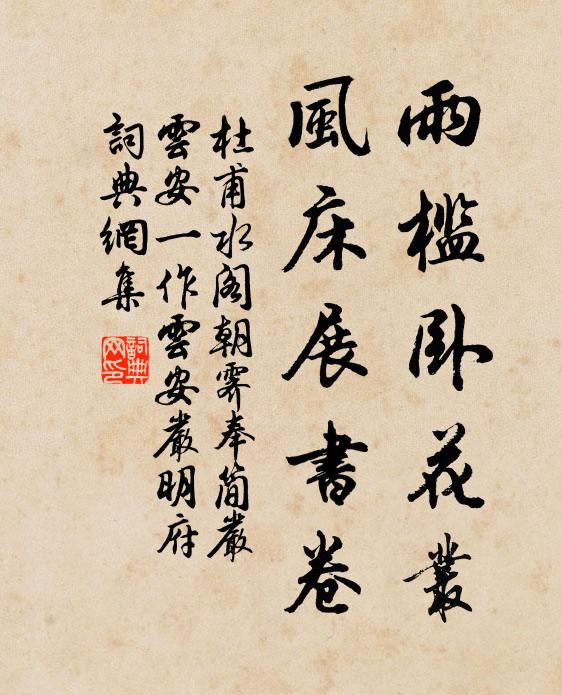 雨檻臥花叢
風床展書卷
杜甫水阁朝霽奉简嚴
雲安一作雲安嚴明府
詞典網集
詞典网印